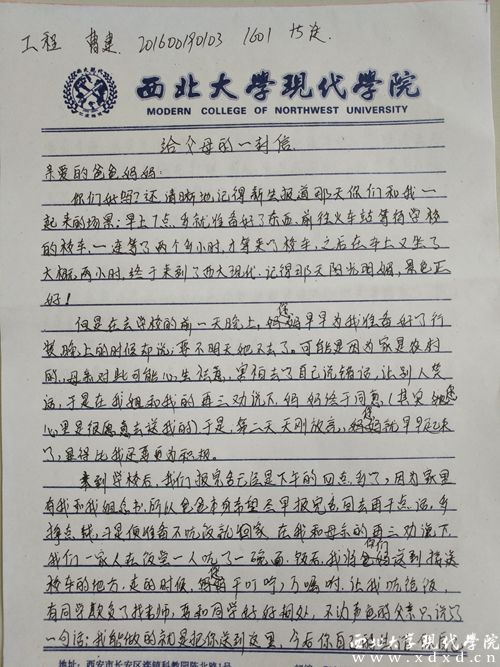 工程 曹建 201600190103 1601
西北大學現代學院
MODERN COLLEGE OF NORTHWEST UNIVERSITY
给父母的一封信
亲爱的爸爸妈妈:
你们好吗?还清晰地记得新生报道那天你们和我一
起来的场景;早上7点多就准备好了东西,前往火车站等待学校
的校车,一连等了两个多小时,才等来了校车,之后在车上又坐了
大概两小时,终于来到了西大现代.记得那天阳光明媚,景色正
好!
但是在去学校的前一天晚上,妈妈早早为我准备好了行
装,晚上的时候却说:要不明天她不去了。可能是因为家是农村
的,母亲对此可能心生怯意,害怕去了自己说错话,让别人笑
话,于是在我姐和我的再三劝说下,妈妈终于同意,(其实她
心里是很愿意去送我的)于是,第二天天刚放亮,妈妈就早早起来
了,显得比我还要更为积极。
来到学校后,我们报完名已经是下午的四点多了,因为家里
有我和我姐念书,所以爸爸本有希望尽早报完名回去再干点活,多
挣点钱,于是便准备不吃饭就回家.在我和母亲的再三劝说下,
我们一家人在饭堂一人吃了一碗面.饭后,我将爸妈送到接送
你们
校车的地方,走的时候,妈妈千叮咛,万嘱咐,让我吃饱饭,
有同学欺负了找老师,要和同学好好相处,不动声色的父亲只说了
一句话:我能做的就是把你送到这里,今后你自己的
地址:西安市长安区滦镇科教园陈北路1号
西北大学现代学院
www.xdxd.cn